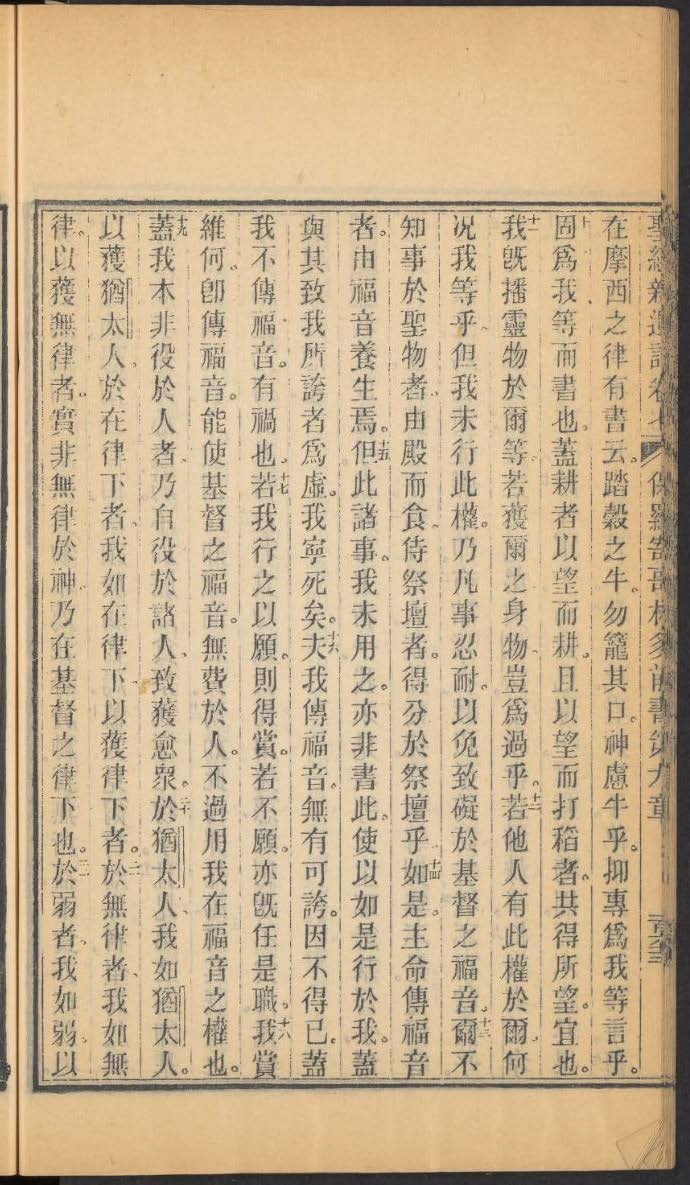 聖經新遺詔卷七 保羅寄哥林多前書第九章
在摩西之律有書云。踏穀之牛。勿籠其口。神慮牛乎。抑專爲我等言乎。
十固爲我等而書也。蓋耕者以望而耕。且以望而打稻者。共得所望。宜也。
十一我旣播靈物於爾等、若獲爾之身物、豈爲過乎。十二若他人有此權於爾、何
況我等乎、但我未行此權。乃凡事忍耐。以免致礙於基督之福音。十三爾不
知事於聖物者、由殿而食、侍祭壇者。得分於祭壇乎。十四如是。主命傳福音
者。由福音養生焉。十五但此諸事。我未用之。亦非書此。使以如是行於我。蓋
與其致我所誇者爲虛。我寧死矣。十六夫我傳福音。無有可誇。因不得已。蓋
我不傳福音。有禍也。十七若我行之以願。則得賞。若不願。亦旣任是職。十八我賞
維何。卽傳福音。能使基督之福音。無費於人。不過用我在福音之權也。
十九蓋我本非役於人者、乃自役於諸人、致獲愈衆。二十於猶太人、我如猶太人。
以獲猶太人、於在律下者、我如在律下、以獲律下者。二一於無律者、我如無
律。以獲無律者。實非無律於神、乃在基督之律下也。二二於弱者、我如弱、以